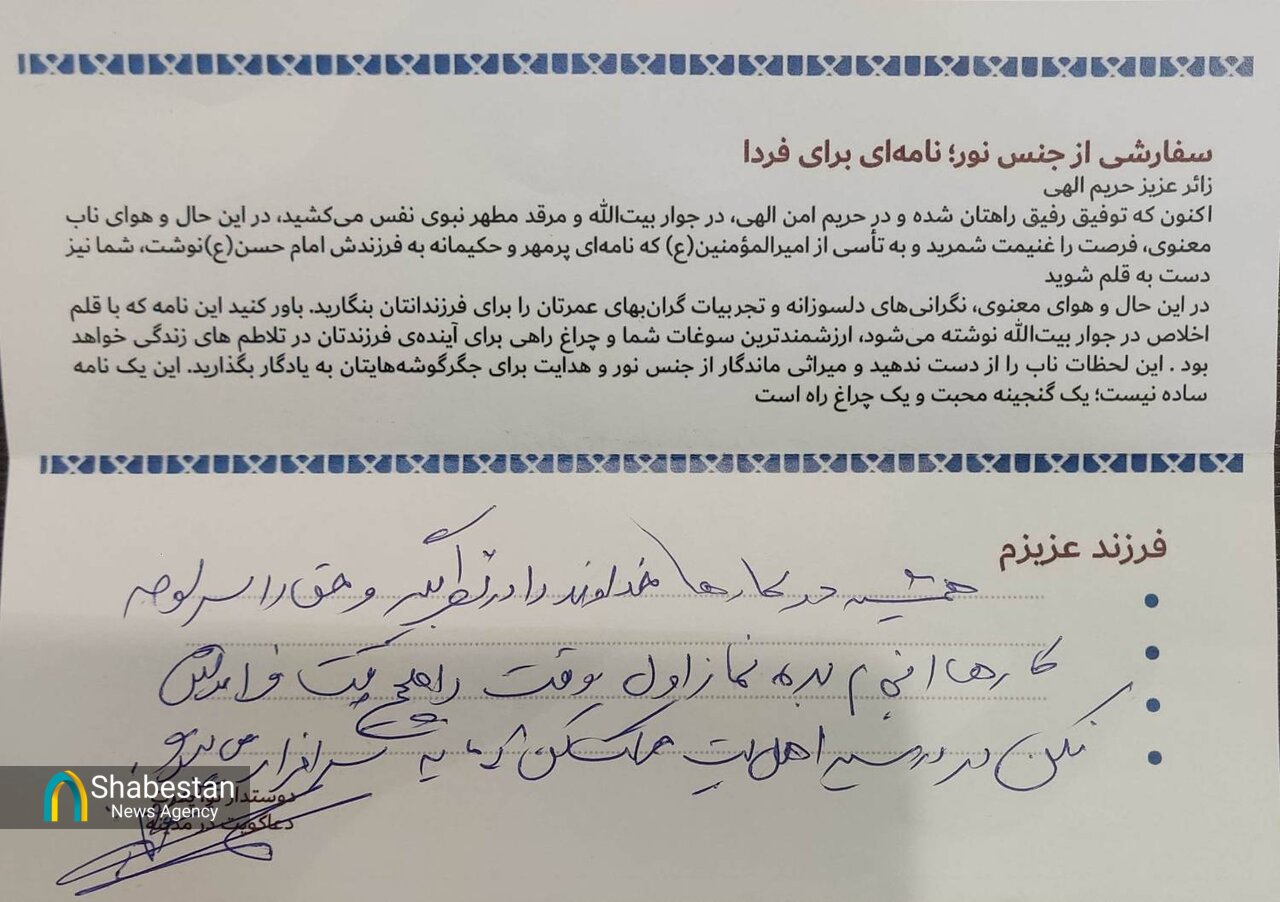 سفارشی از جنس نور؛ نامه‌ای برای فردا
زائر عزیز حریم الهی
اکنون که توفیق رفیق راهتان شده و در حریم امن الهی، در جوار بیت‌الله و مرقد مطهر نبوی نفس می‌کشید، در این حال و هوای ناب
معنوی، فرصت را غنیمت شمرید و به تأسی از امیرالمؤمنین(ع) که نامه‌ای پرمهر و حکیمانه به فرزندش امام حسن(ع)نوشت، شما نیز
دست به قلم شوید
در این حال و هوای معنوی، نگرانی‌های دلسوزانه و تجربیات گران‌بهای عمرتان را برای فرزندانتان بنگارید. باور کنید این نامه که با قلم
اخلاص در جوار بیت‌الله نوشته می‌شود، ارزشمندترین سوغات شما و چراغ راهی برای آینده‌ی فرزندتان در تلاطم های زندگی خواهد
بود . این لحظات ناب را از دست ندهید و میراثی ماندگار از جنس نور و هدایت برای جگرگوشه‌هایتان به یادگار بگذارید. این یک نامه
ساده نیست؛ یک گنجینه محبت و یک چراغ راه است
فرزند عزیزم
همیشه در کارها خداوند را در نظر بگیر و حق را سر لوحه
کارها انجام بده نماز اول وقت را هیچ وقت فراموش
نکن در مسیر اهل بیت سرافراز
دوستدار تو
دعاگویت در مدینه
Shabestan
News Agency